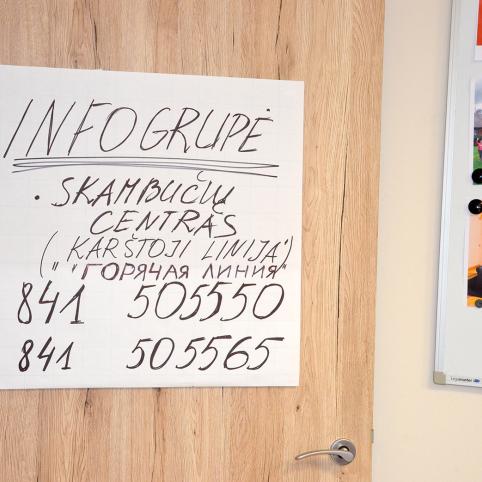 INFOGRUPĖ
• SKAMBUČIŲ
CENTRAS
(„KARŠTOJI LINIJA")
"ГОРЯЧАЯ ЛИНИЯ"
841 505550
841 505565